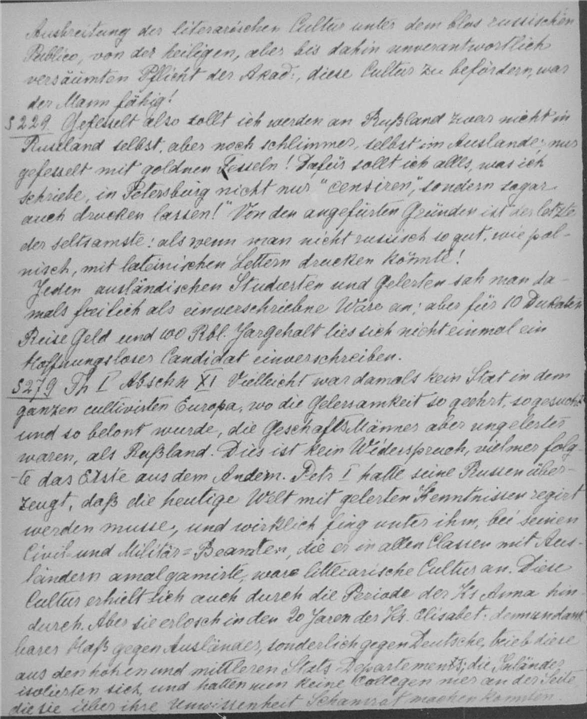 Ausbreitung der literarischen Cultur unter dem blos russischen
Publico, von der heiligen, aber bis dahin unverantwortlich
versäumten Pflicht der Akad:, diese Cultur zu befördern, war
der Mann fähig!
S 229 Gefesselt also sollt ich werden an Rußland zwar nicht in
Russland selbst, aber noch schlimmer, selbst im Auslande; nur
gefesselt mit goldnen Fesseln! Dafür sollt ich alles, was ich
schriebe, in Petersburg nicht nur "censiren," sondern sogar
auch drucken lassen!" Von den angefürten Gründen ist der letzte
der seltsamste: als wenn man nicht russisch so gut, wie pol-
nisch, mit lateinischen Lettern drucken könnte!
Jeden ausländischen Studierten und Gelerten sah man da-
mals freilich als einverschriebne Ware an; aber für 10 Dukaten
Reise Geld und 100 Rbl. Jargehalt lies sich nicht einmal ein
hoffnungsloser Candidat einverschreiben.
S 279 Th I Abschn XI Vielleicht war damals kein Stat in dem
ganzen cultivirten Europa, wo die Gelersamkeit so geehrt, so gesucht
und so belont wurde, die Geschäfts Männer aber ungelerter
waren, als Rußland. Dies ist kein Widerspruch, vielmer folg-
te das Erste aus dem Andern. Petr I hatte seine Russen über-
zeugt, daß die heutige Welt mit gelerten Kenntnissen regirt
werden musse, und wirklich fing unter ihm, bei seinen
Civil und Militär=Beamten, die er in allen Classen mit Aus-
ländern amalgamirte, ware litterarische Cultur an. Diese
Cultur erhielt sich auch durch die Periode der Ks Anna hin
durch. Aber sie erlosch in den 20 Jaren der Ks. Elisabet: denn undank
barer Haß gegen Ausländer, sonderlich gegen Deutsche, trieb diese
aus den hohen und mittleren Stats Departements; die Inländer
isolierten sich, und hatten nun keine Collegen mer an der Seite
die sie über ihre Unwissenheit schamrot machen konnten.